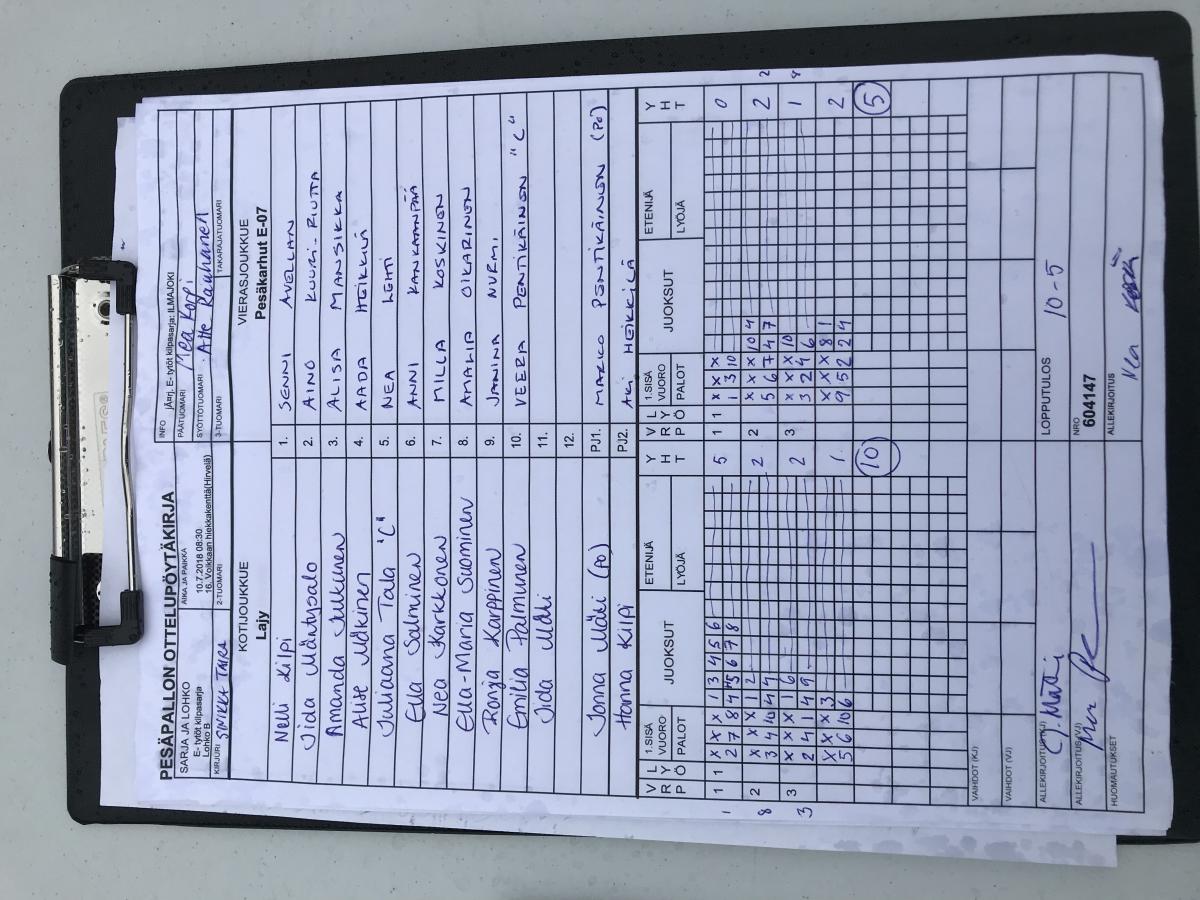 PESÄPALLON OTTELUPÖYTÄKIRJA
SARJA JA LOHKO
E- tytöt kilpasarja
Lohko B
AIKA JA PAIKKA
10.7.2018 08:30
16. Voikkaan hiekkakenttä(Hirvelä)
INFO
E- tytöt kilpasarja: ILMAJOKI
PÄÄTUOMARI Mea Korpi
SYÖTTÖTUOMARI Atte Rauhanen
KIRJURI SINIKKA
2-TUOMARI
3-TUOMARI
TAKARAJATUOMARI
KOTIJOUKKUE
Lajy
VIERASJOUKKUE
Pesäkarhut E-07
Nelli Kilpi 1. SENNI AVELLAN
Iida Mäntysalo 2. AINO KUURI-RIUTTA
Amanda 3. ALISA MANSIKKA
Mäkinen 4. AADA HEIKKILÄ
Juliaana Tala "C" 5. NEA LEHTI
Ella Salminen 6. ANNI KANKAANPÄÄ
Nea Karkkonen 7. MILLA KOSKINEN
Ella-Maria Suominen 8. AMALIA OIKARINEN
Ronja Karppinen 9. JANINA NURMI
Emilia Palmunen 10. VEERA PENTIKÄINEN "C"
Iida Mäki 11.
12.
Jonna Mäki (PO) PJ1. MARKO PENTIKÄINEN (PO)
Hanna Kilpi PJ2. AKI HEIKKILÄ
VRP LYÖ 1.SISÄ VUORO PALOT JUOKSUT ETENIJÄ LYÖJÄ YHT
VRP LYÖ 1.SISÄ VUORO PALOT JUOKSUT ETENIJÄ LYÖJÄ YHT
1 1 1 X X X 1 3 4 5 6 5 1 1 X X X 0
2 7 8 4 5 6 7 8 1 3 10
8 2 X X X 1 2 2 2 X X X 10 4 2 2
3 4 10 4 4 5 6 7 4 7
3 3 X X X 1 6 2 3 X X X 10 1
2 4 1 4 9 3 2 4 6
X X X 3 1 X X X 8 1 2
5 6 10 6 9 5 2 2 4
10 5
VAIHDOT (KJ)
VAIHDOT (VJ)
ALLEKIRJOITUS (KJ)
LOPPUTULOS 10-5
ALLEKIRJOITUS (VJ)
NRO
604147
HUOMAUTUKSET
ALLEKIRJOITUS Nea